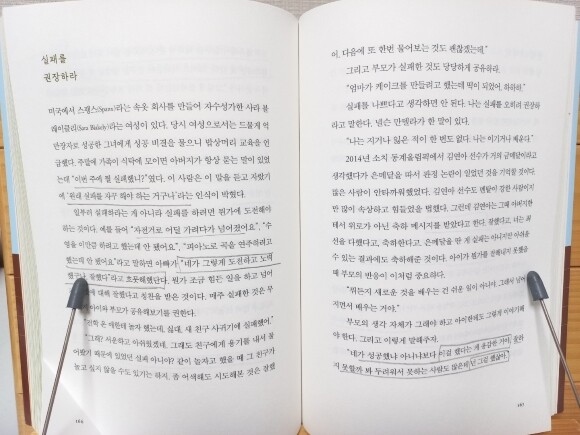 실패를
권장하라
미국에서 스팽스(Spanx)라는 속옷 회사를 만들어 자수성가한 사라 블
레이클리(Sara Blakely)라는 여성이 있다. 당시 여성으로서는 드물게 억
만장자로 성공한 그녀에게 성공 비결을 물으니 밥상머리 교육을 언
급했다. 주말에 가족이 식탁에 모이면 아버지가 항상 묻는 말이 있었
는데 "이번 주에 뭘 실패했니?"였다. 이 사람은 이 말을 듣고 자랐기
에 '원래 실패를 자꾸 해야 하는 거구나'라는 인식이 박혔다.
일부러 실패하라는 게 아니라 실패를 하려면 뭔가에 도전해야
하는 것이다. 예를 들어 "자전거로 어딜 가려다가 넘어졌어요", "수
영을 이만큼 하려고 했는데 안 됐어요", "피아노로 곡을 연주하려고
했는데 안 됐어요"라고 말하면 아빠가 "네가 그렇게 도전하고 노력
잘했다"라고 흐뭇해했단다. 뭔가 조금 힘든 일을 하고 넘어
대해 잘했다고 칭찬을 받은 것이다. 매주 실패한 것은 무
아이와 부모가 공유해보기를 권한다.
친한 애한테 놀자 했는데, 싫대. 새 친구 사귀기에 실패했어."
"그래? 서운하고 아쉬웠겠네. 그래도 친구에게 용기를 내서 물
어봤기 때문에 있었던 실패 아니야? 같이 놀자고 했을 때 그 친구가
놀고 싶지 않을 수도 있기는 하지. 좀 어색해도 시도해본 것은 잘했
162
어. 다음에 또 한번 물어보는 것도 괜찮겠는데."
그리고 부모가 실패한 것도 당당하게 공유하라.
"엄마가 케이크를 만들려고 했는데 떡이 되었어, 하하하."
실패를 나쁘다고 생각하면 안 된다. 나는 실패를 오히려 권장하
라고 말한다. 넬슨 만델라가 한 말이 있다.
"나는 지거나 잃은 적이 한 번도 없다. 나는 이기거나 배운다."
2014년 소치 동계올림픽에서 김연아 선수가 거의 금메달이라고
생각했다가 은메달을 따서 판정 논란이 있었던 것을 기억할 것이다.
많은 사람이 안타까워했었다. 김연아 선수도 멘탈이 강한 사람이지
만 많이 속상하고 힘들었을 법했다. 그런데 김연아는 그때 아버지한
테서 위로가 아닌 축하 메시지를 받았다고 한다. 잘했다고, 너는 최
선을 다했다고, 축하한다고. 은메달을 딴 게 실패는 아니지만 아쉬울
수 있는 결과에도 축하해준 것이다. 아이가 뭔가를 잘해내지 못했을
때 부모의 반응이 이처럼 중요하다.
"뭐든지 새로운 것을 배우는 건 쉬운 일이 아니야. 그래서 넘어
지면서 배우는 거야."
부모의 생각 자체가 그래야 하고 아이한테도 그렇게 이야기해
야 한다. 그리고 이렇게 말해주자.
"네가 성공했냐 아니냐보다 이걸 했다는 게 용감한 거야. 잘하
지 못할까 봐 두려워서 못하는 사람도 많은데 넌 그걸 했잖아."
163